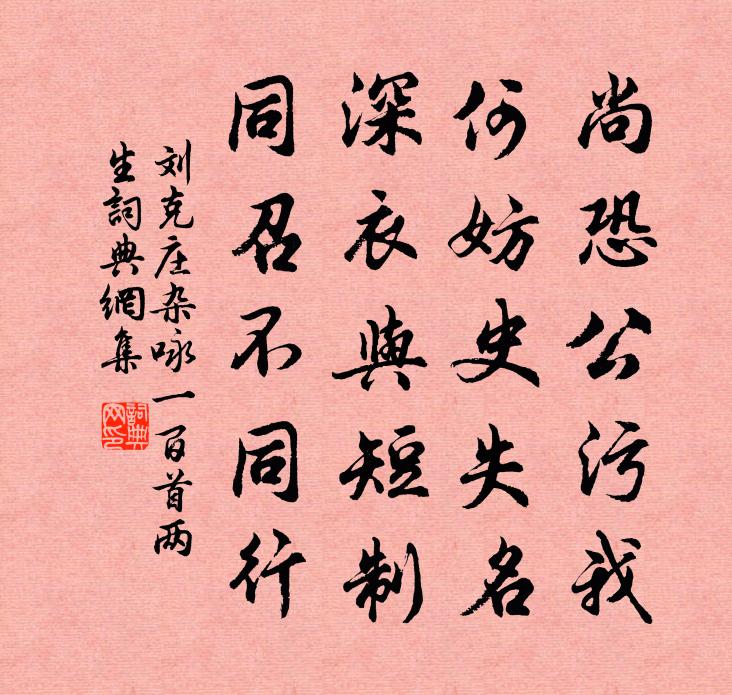 尚恐公污我
何妨史失名
深衣與短制
同召不同行
刘克庄杂咏一百首两
生詞典網集
詞典
网印